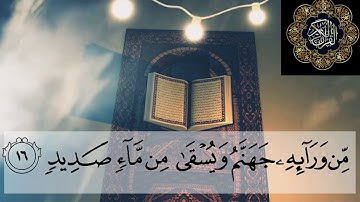 مِّن وَرَآئِهِۦ جَهَنَّمُ وَيُسۡقَىٰ مِن مَّآءٖ صَدِيدٖ ١٦